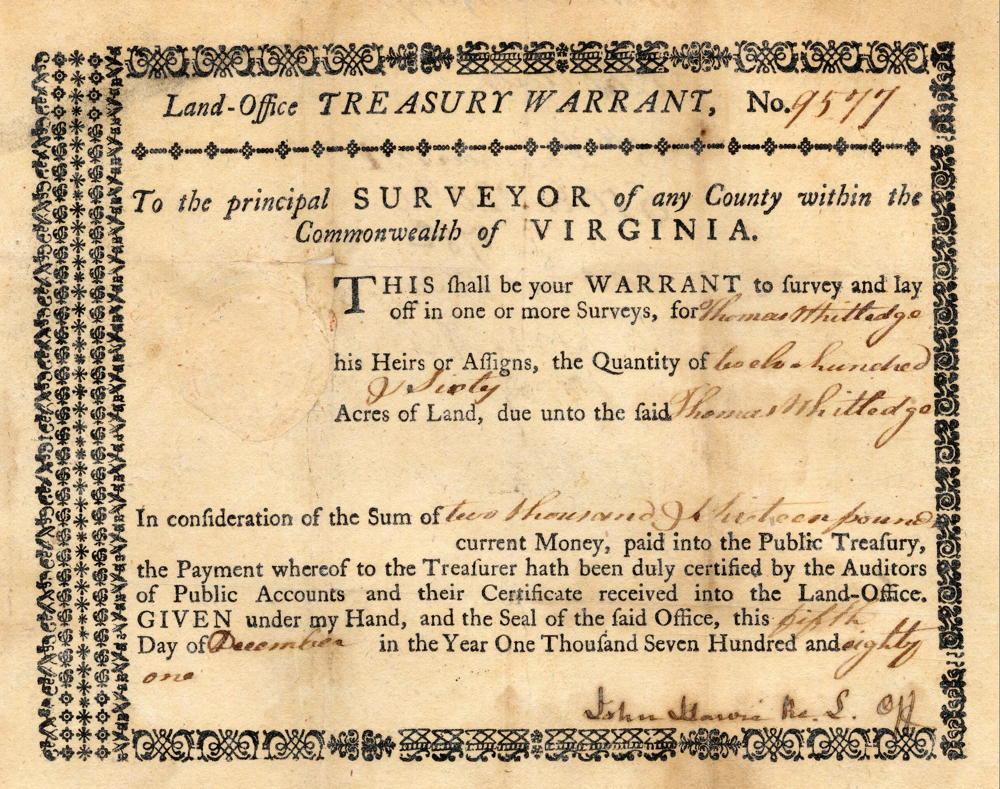 Land-Office TREASURY WARRANT, No. 9577
To the principal SURVEYOR of any County within the
Commonwealth of VIRGINIA.
THIS ſhall be your WARRANT to ſurvey and lay
off in one or more Surveys, for Thomas Whitledge
his Heirs or Aſſigns, the Quantity of twelve hundred
& Sixty
Acres of Land, due unto the ſaid Thomas Whitledge
In conſideration of the Sum of two thousand & thirteen pounds
current Money, paid into the Public Treaſury,
the Payment whereof to the Treaſurer hath been duly certified by the Auditors
of Public Accounts and their Certificate received into the Land-Office.
GIVEN under my Hand, and the Seal of the ſaid Office, this fifth
Day of December in the Year One Thouſand Seven Hundred and eighty
one
John Re. L. Off